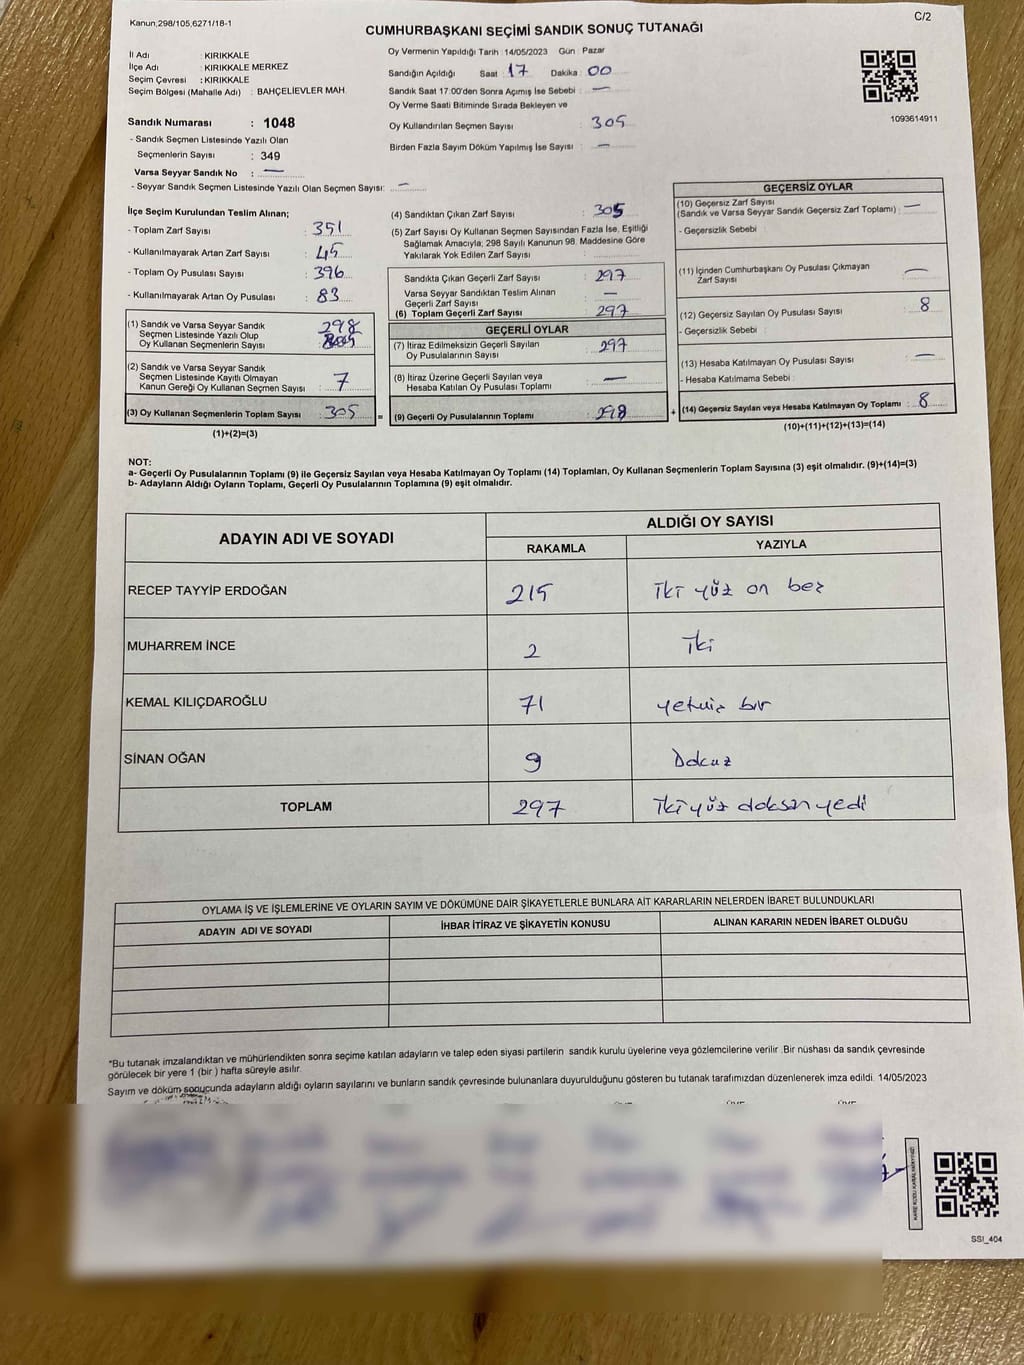 Kanun,298/105,6271/18-1
C/2
CUMHURBAŞKANI SEÇİMİ SANDIK SONUÇ TUTANAĞI
İl Adı : KIRIKKALE
İlçe Adı : KIRIKKALE MERKEZ
Seçim Çevresi : KIRIKKALE
Seçim Bölgesi (Mahalle Adı) : BAHÇELİEVLER MAH.
Sandık Numarası : 1048
- Sandık Seçmen Listesinde Yazılı Olan
Seçmenlerin Sayısı : 349
Varsa Seyyar Sandık No : —
- Seyyar Sandık Seçmen Listesinde Yazılı Olan Seçmen Sayısı: —
Oy Vermenin Yapıldığı Tarih : 14/05/2023 Gün : Pazar
Sandığın Açıldığı Saat : 17 Dakika : 00
Sandık Saat 17:00'den Sonra Açımış İse Sebebi : —
Oy Verme Saati Bitiminde Sırada Bekleyen ve
Oy Kullandırılan Seçmen Sayısı : 305
Birden Fazla Sayım Döküm Yapılmış İse Sayısı : —
1093614911
İlçe Seçim Kurulundan Teslim Alınan;
- Toplam Zarf Sayısı : 351
- Kullanılmayarak Artan Zarf Sayısı : 45
- Toplam Oy Pusulası Sayısı : 396
- Kullanılmayarak Artan Oy Pusulası : 83
(1) Sandık ve Varsa Seyyar Sandık
Seçmen Listesinde Yazılı Olup
Oy Kullanan Seçmenlerin Sayısı : 298
(2) Sandık ve Varsa Seyyar Sandık
Seçmen Listesinde Kayıtlı Olmayan
Kanun Gereği Oy Kullanan Seçmen Sayısı : 7
(3) Oy Kullanan Seçmenlerin Toplam Sayısı : 305 =
(1)+(2)=(3)
(4) Sandıktan Çıkan Zarf Sayısı : 305
(5) Zarf Sayısı Oy Kullanan Seçmen Sayısından Fazla İse, Eşitliği
Sağlamak Amacıyla; 298 Sayılı Kanunun 98. Maddesine Göre
Yakılarak Yok Edilen Zarf Sayısı :
Sandıkta Çıkan Geçerli Zarf Sayısı : 297
Varsa Seyyar Sandıktan Teslim Alınan
Geçerli Zarf Sayısı : —
(6) Toplam Geçerli Zarf Sayısı : 297
GEÇERLİ OYLAR
(7) İtiraz Edilmeksizin Geçerli Sayılan
Oy Pusulalarının Sayısı : 297
(8) İtiraz Üzerine Geçerli Sayılan veya
Hesaba Katılan Oy Pusulası Toplamı : —
(9) Geçerli Oy Pusulalarının Toplamı : 298 +
GEÇERSİZ OYLAR
(10) Geçersiz Zarf Sayısı
(Sandık ve Varsa Seyyar Sandık Geçersiz Zarf Toplamı) : —
- Geçersizlik Sebebi :
(11) İçinden Cumhurbaşkanı Oy Pusulası Çıkmayan
Zarf Sayısı : —
(12) Geçersiz Sayılan Oy Pusulası Sayısı : 8
- Geçersizlik Sebebi :
(13) Hesaba Katılmayan Oy Pusulası Sayısı : —
- Hesaba Katılmama Sebebi :
(14) Geçersiz Sayılan veya Hesaba Katılmayan Oy Toplamı : 8
(10)+(11)+(12)+(13)=(14)
NOT:
a- Geçerli Oy Pusulalarının Toplamı (9) ile Geçersiz Sayılan veya Hesaba Katılmayan Oy Toplamı (14) Toplamları, Oy Kullanan Seçmenlerin Toplam Sayısına (3) eşit olmalıdır. (9)+(14)=(3)
b- Adayların Aldığı Oyların Toplamı, Geçerli Oy Pusulalarının Toplamına (9) eşit olmalıdır.
ADAYIN ADI VE SOYADI
ALDIĞI OY SAYISI
RAKAMLA YAZIYLA
RECEP TAYYİP ERDOĞAN 215 iki yüz on beş
MUHARREM İNCE 2 iki
KEMAL KILIÇDAROĞLU 71 yetmiş bir
SİNAN OĞAN 9 Dokuz
TOPLAM 297 iki yüz doksan yedi
OYLAMA İŞ VE İŞLEMLERİNE VE OYLARIN SAYIM VE DÖKÜMÜNE DAİR ŞİKAYETLERLE BUNLARA AİT KARARLARIN NELERDEN İBARET BULUNDUKLARI
ADAYIN ADI VE SOYADI İHBAR İTİRAZ VE ŞİKAYETİN KONUSU ALINAN KARARIN NEDEN İBARET OLDUĞU
*Bu tutanak imzalandıktan ve mühürlendikten sonra seçime katılan adayların ve talep eden siyasi partilerin sandık kurulu üyelerine veya gözlemcilerine verilir. Bir nüshası da sandık çevresinde
görülecek bir yere 1 (bir ) hafta süreyle asılır.
Sayım ve döküm sonucunda adayların aldığı oyların sayılarını ve bunların sandık çevresinde bulunanlara duyurulduğunu gösteren bu tutanak tarafımızdan düzenlenerek imza edildi. 14/05/2023
SSI_404